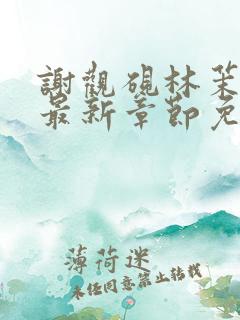 謝觀硯林茉
最新章節免
薄荷迷
未经同意禁止转载